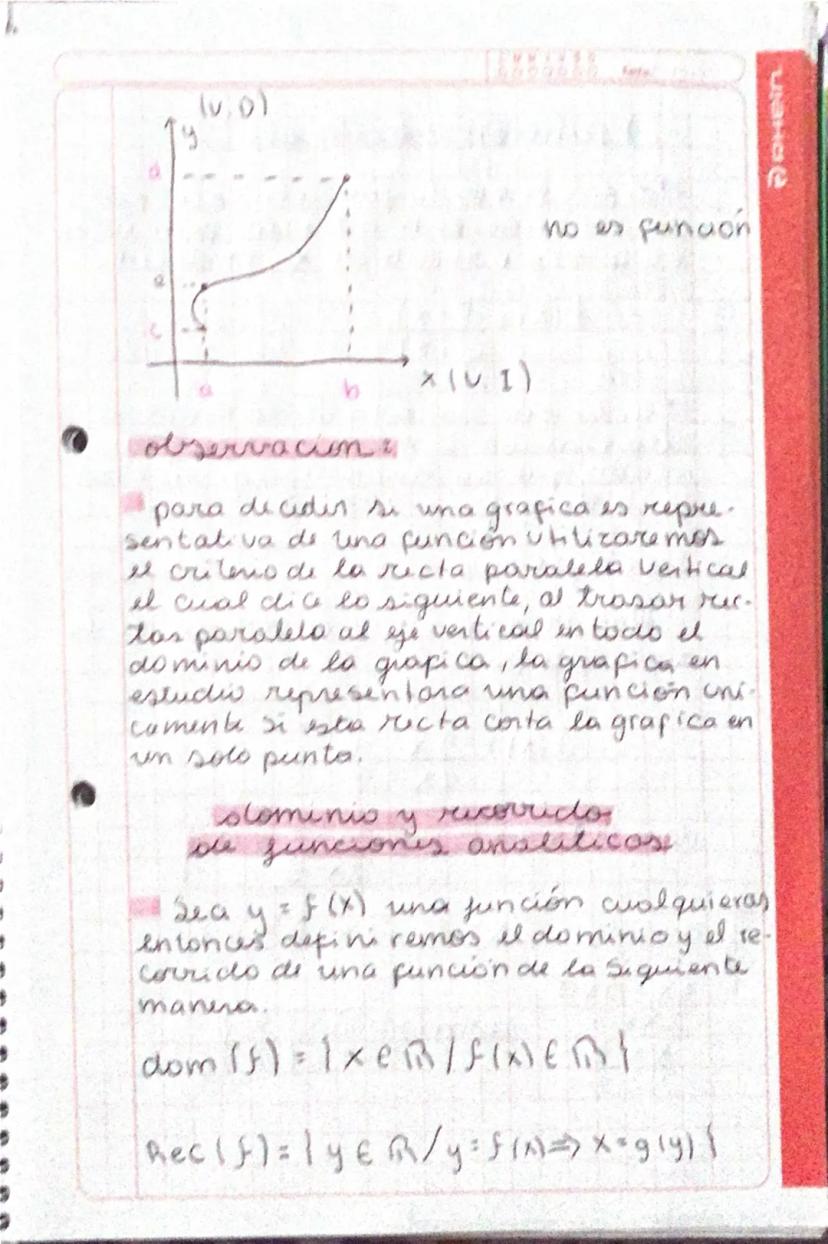 (V, D)
y
d
no es función
e
c
a
b
x (V, I)
observacion:
para decidir si una grafica es repre-
sentativa de una función utilizaremos
el criterio de la recta paralela vertical
el cual dice lo siguiente, al trasar rec-
tas paralela al eje vertical en todo el
dominio de la grafica, la grafica en
estudio representara una función uni-
camente si esta recta corta la grafica en
un solo punto.
dominio y recorrido
de funciones analiticas
Sea y = f(x) una función cualquieras
entonces definiremos el dominio y el re-
corrido de una función de la siguiente
manera.
dom (f) = { x ∈ ℝ / f(x) ∈ ℝ }
Rec (f) = { y ∈ ℝ / y = f(x) ⇒ x = g(y) }